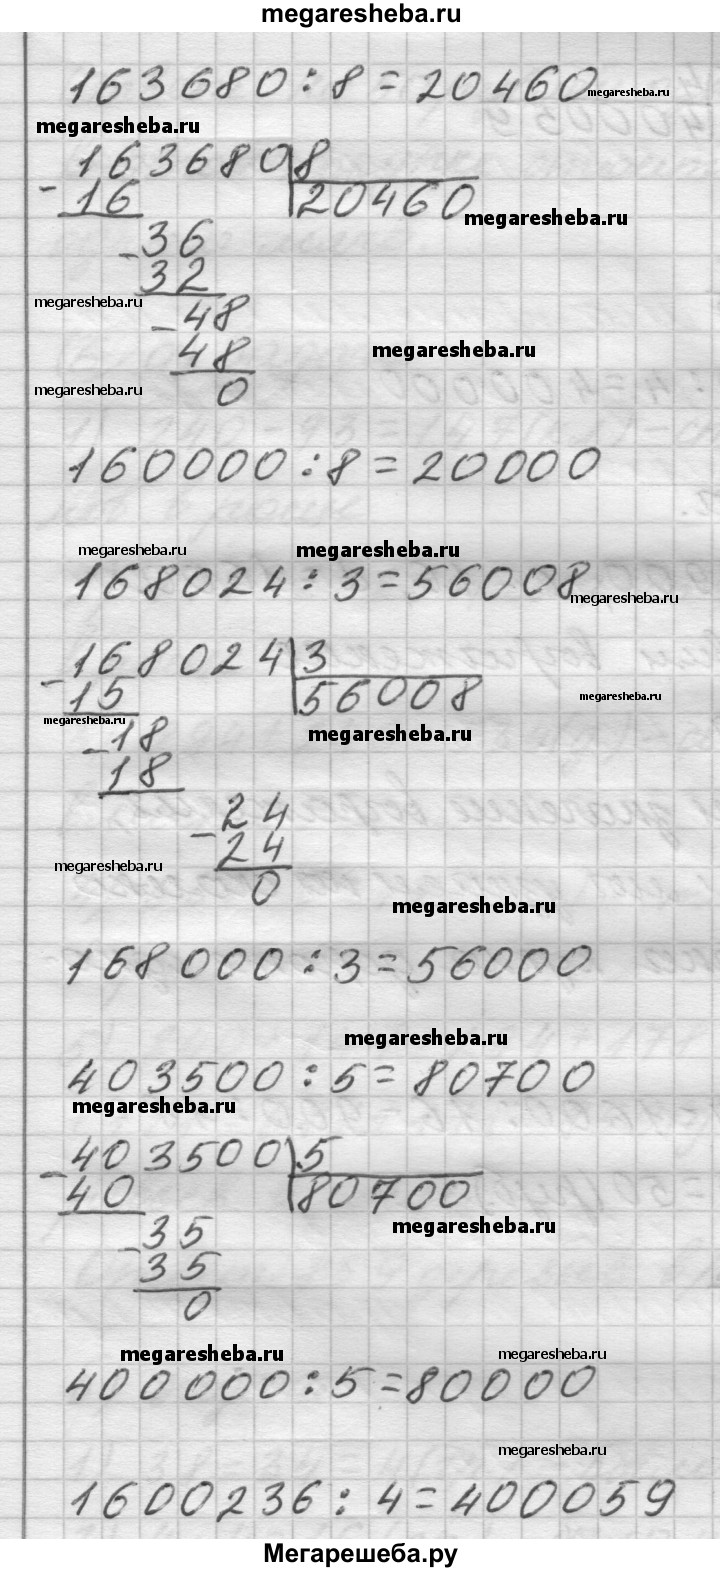 megaresheba.ru
163680:8=20460 megaresheba.ru
megaresheba.ru
163680 8
- 16 20460 megaresheba.ru
- 36
32
megaresheba.ru - 48
48 megaresheba.ru
megaresheba.ru 0
160000:8=20000
megaresheba.ru megaresheba.ru
168024:3=56008 megaresheba.ru
168024 3
- 15 56008 megaresheba.ru
megaresheba.ru - 18 megaresheba.ru
18
24
- 24
megaresheba.ru 0
megaresheba.ru
168000:3=56000
megaresheba.ru
403500:5=80700
megaresheba.ru
403500 5
- 40 80700
megaresheba.ru
- 35
35
0
megaresheba.ru megaresheba.ru
400000:5=80000
megaresheba.ru
1600236:4=400059
Мегарешеба.ру